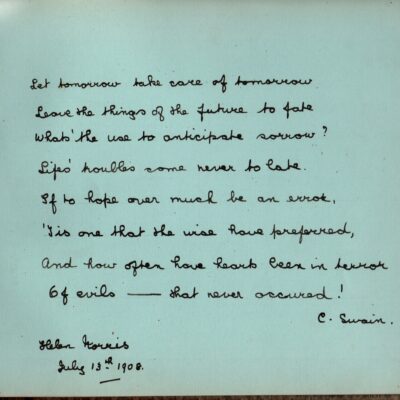 Let tomorrow take care of tomorrow
Leave the things of the future to fate
Whats' the use to anticipate sorrow?
Lifes' troubles come never to late.
If to hope over much be an error,
'Tis one that the wise have preferred,
And how often have hearts been in terror
Of evils — that never occured!
C. Swain.
Helen Norris
July 13th 1908.